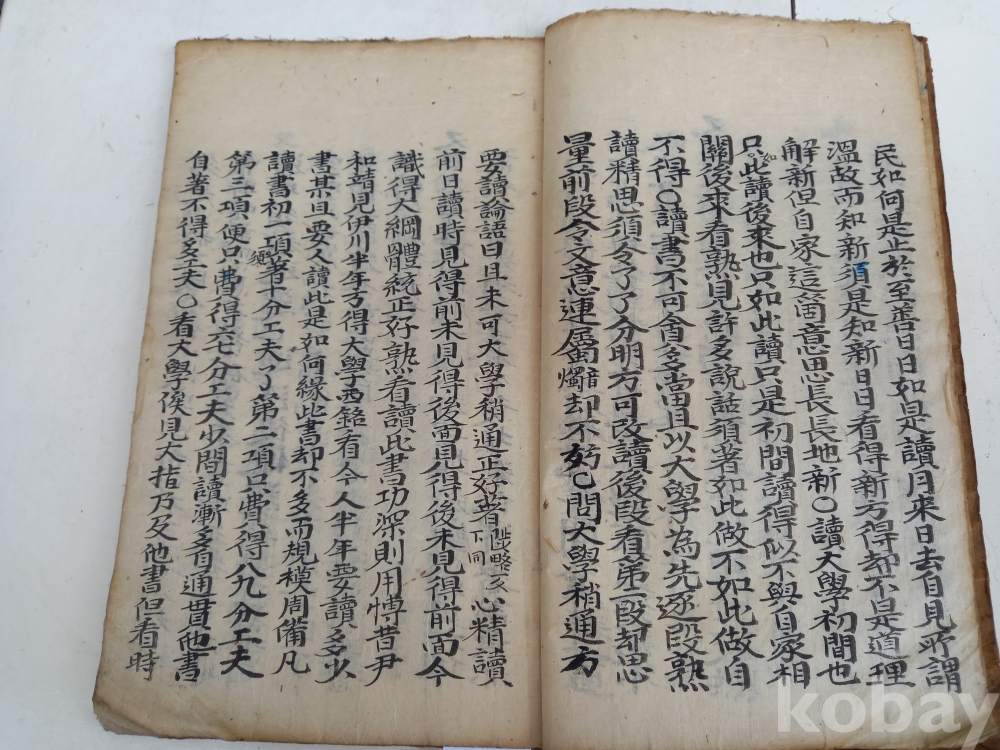 民如何是止於至善日日如是讀月來日去自見所謂
溫故而知新須是知新日日看得新方得却不是道理
解新但自家這箇意思長長地新○讀大學初間也
只如此讀後來也只如此讀只是初間讀得似不與自家相
關後來看熟見許多說話須著如此做不如此做自
不得○讀書不可貪多當且以大學為先逐段熟
讀精思須令了了分明方可改讀後段看第二段却思
量前段令文意連屬燭音却不妨問大學稍通方
要讀論語曰且未可大學稍通正好著心精讀
陛略下同
前日讀時見得前未見得後面見得後未見得前面今
識得大綱體統正好熟看讀此書功深則用愽昔尹
和靖見伊川半年方得大學西銘看今人半年要讀多少
書某且要人讀此是如何緣此書却不多而規模周備凡
讀書初一項須著十分工夫了第二項只費得八九分工夫
第三項便只費得六七分工夫少間讀漸多自通貫他書
自著不得多工夫○看大學俟見大指乃及他書但看時
kobay